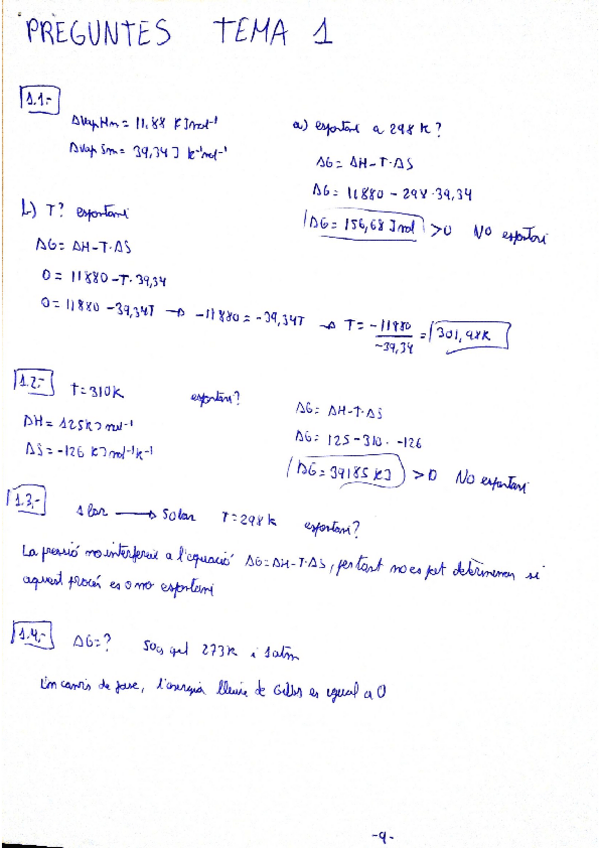 PREGUNTES TEMA 1
1.1.-
ΔvapHm = 11,88 KJmol⁻¹
ΔvapSm = 39,34 J K⁻¹mol⁻¹
a) espontani a 298 K?
ΔG = ΔH-T·ΔS
ΔG = 11880 - 298·39,34
ΔG = 156,68 J mol >0 NO espontani
b) T? espontani
ΔG = ΔH-T·ΔS
0 = 11880 - T·39,34
0 = 11880 - 39,34T → -11880 = -39,34T → T = -11880/-39,34 = 301,98K
1.2.- T=310K espontani?
ΔH = 125KJ mol⁻¹
ΔS = -126 KJ mol⁻¹K⁻¹
ΔG = ΔH-T·ΔS
ΔG = 125-310·-126
ΔG = 39185 KJ >0 NO espontani
1.3.- 1 bar → 50 bar T=298K espontani?
La pressió no interfereix a l'equació ΔG=ΔH-T·ΔS, per tant no es pot determinar si
aquest procés es o no espontani
1.4.- ΔG=? 50g gel 273K i 1atm
En canvis de fase, l'energia lliure de Gibbs es igual a 0
-9-